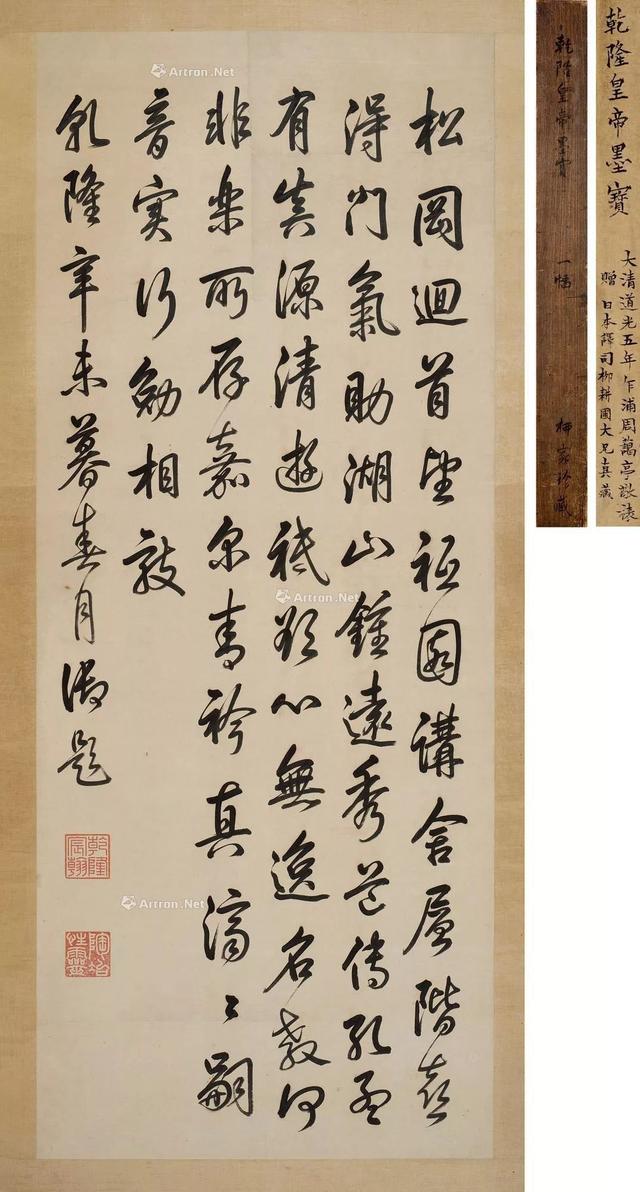 松岡迴首望祗園講舍層階喜
得門氣助湖山鍾遠秀道傳孔孟
有真源清遊祗欲心無逸名教何
非樂所存嘉爾青衿真濟〻嗣
音實行勉相敦
乾隆辛未暮春月御題
乾隆宸翰
陶冶性靈
乾隆皇帝墨寶 一幅 柳家珍藏
乾隆皇帝墨寶
大清道光五年乍浦周藹亭敬
贈 日本譯司柳耕圃大兄真藏
Artron.Net
Artron.Net
Artron.Net
Artron.Net